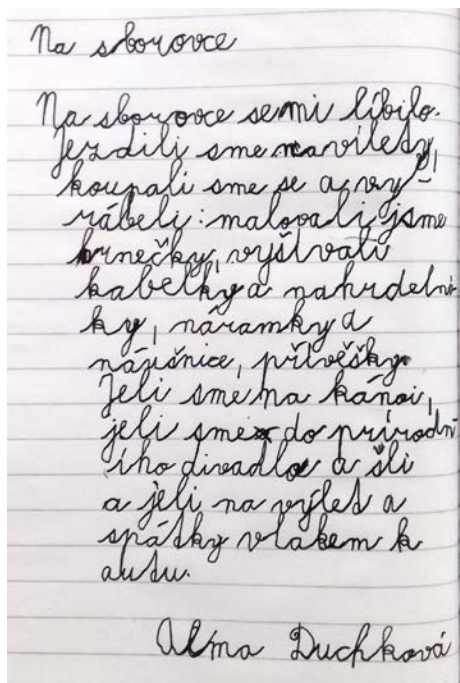 Na sborovce
Na sborovce se mi líbilo.
Jezdili sme na vílety,
koupali sme se a vy-
ráběli: malovali jsme
hrnečky, vyšívali
kabelky a nahrdelní-
ky, náramky a
náušnice, přívěšky.
Jeli sme na kánoi,
jeli sme do prírodn
ího divadla a šli
a jeli na výlet a
spátky vlakem k
autu.
Alma Duchková